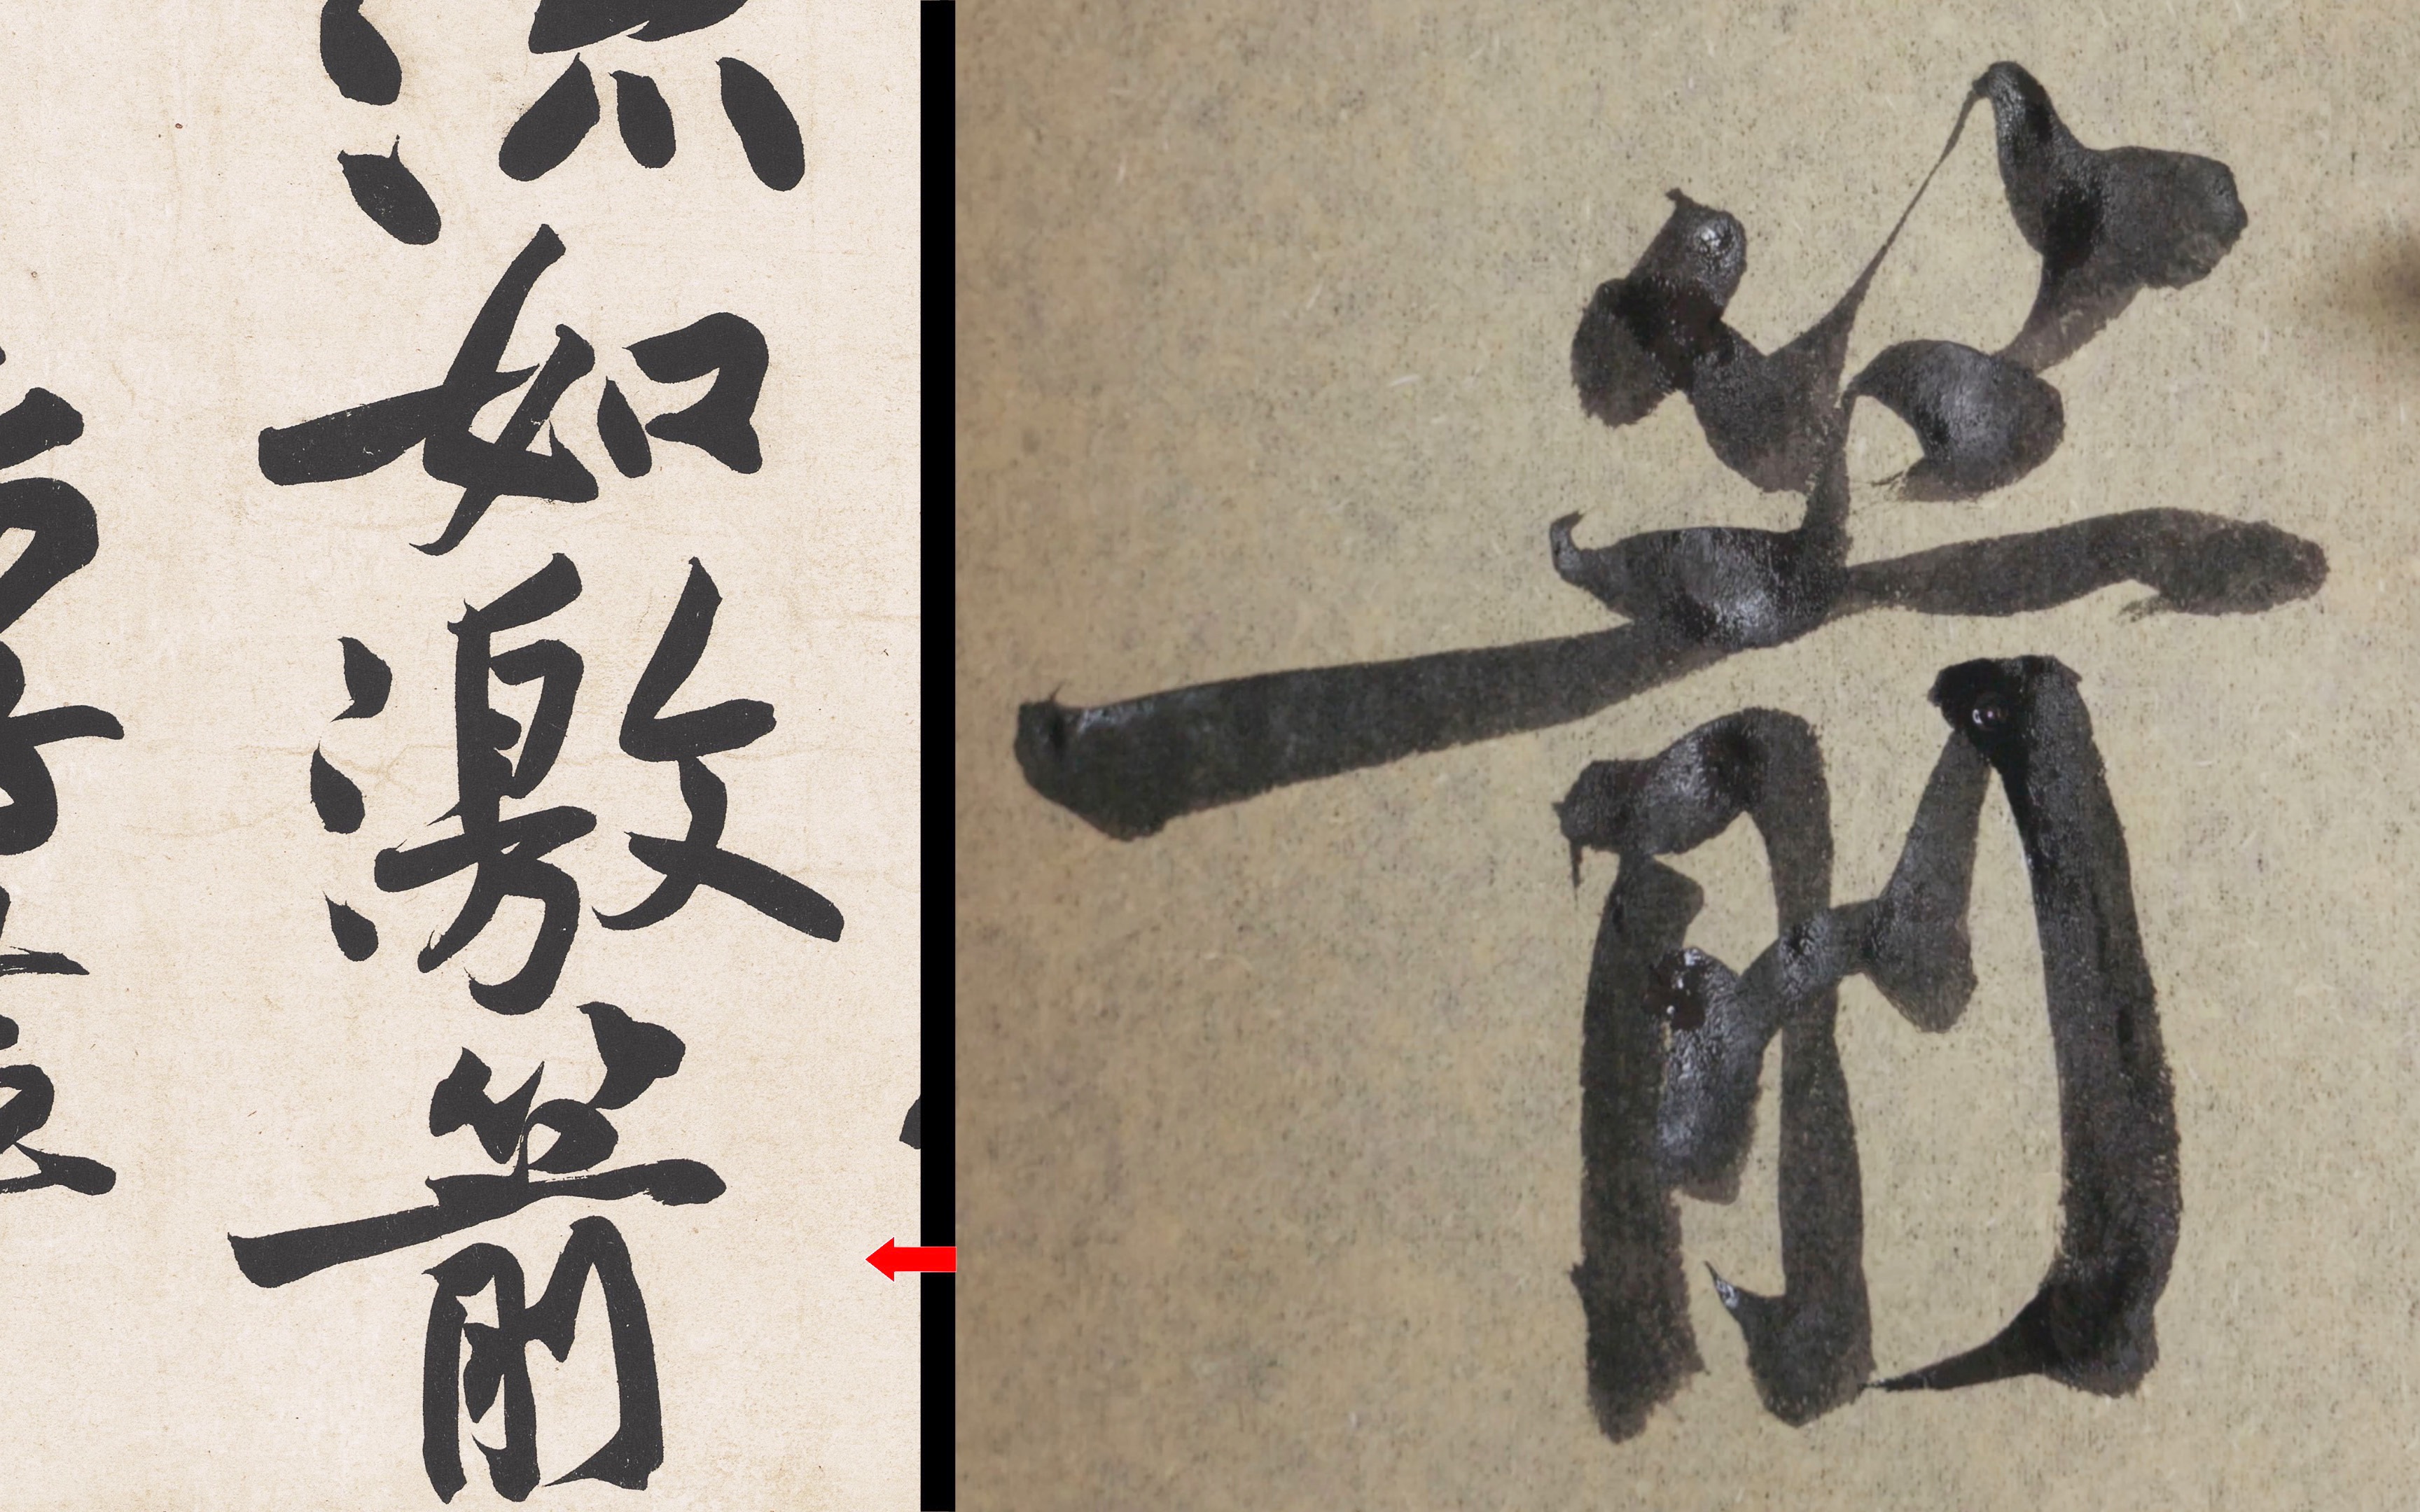 流如激箭
箭